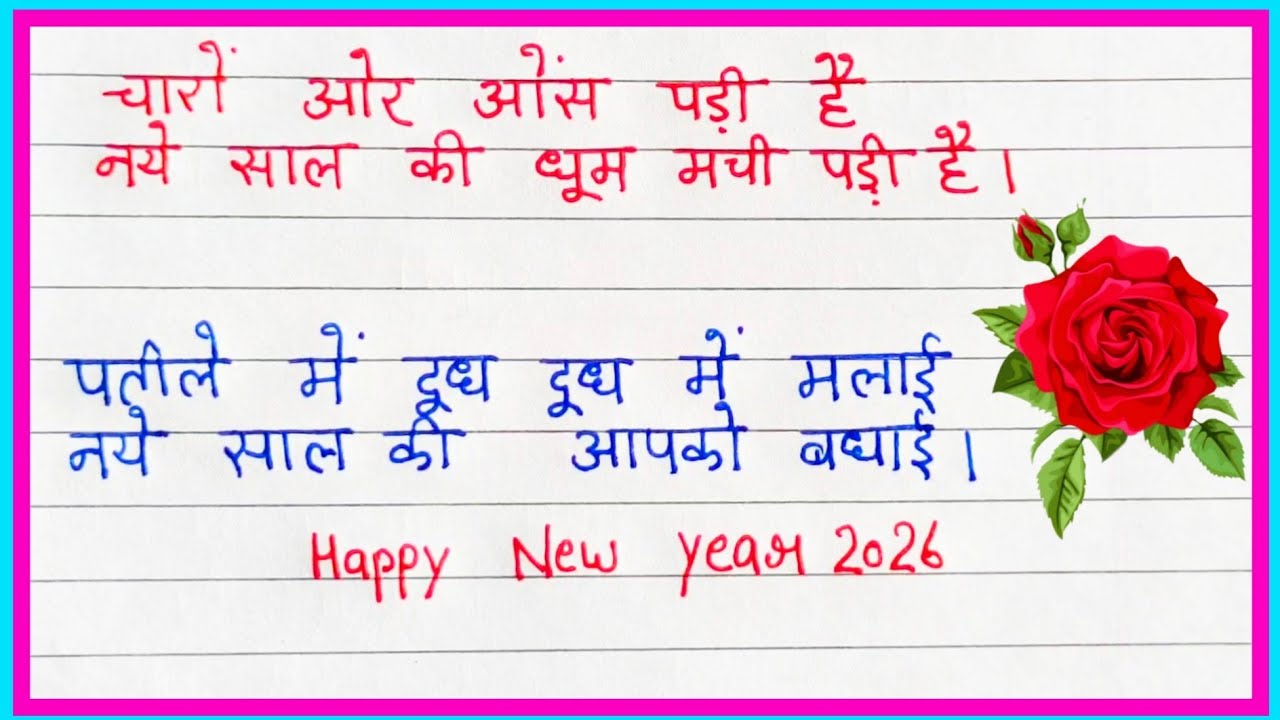 चारों ओर ओंस पड़ी है
नये साल की धूम मची पड़ी है।
पतीले में दूध दूध में मलाई
नये साल की आपको बधाई।
Happy New Year 2026